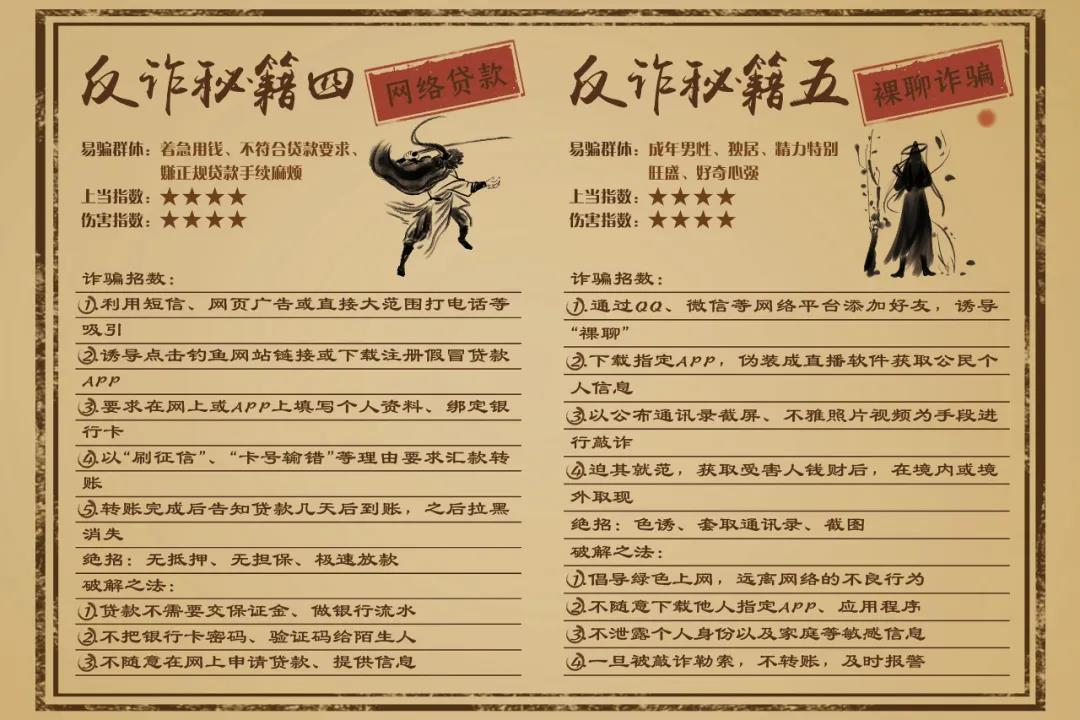 反诈秘籍四
网络贷款
易骗群体：着急用钱、不符合贷款要求、
嫌正规贷款手续麻烦
上当指数：★★★★
伤害指数：★★★★
诈骗招数：
①.利用短信、网页广告或直接大范围打电话等
吸引
②.诱导点击钓鱼网站链接或下载注册假冒贷款
APP
③.要求在网上或APP上填写个人资料、绑定银
行卡
④.以“刷征信”、“卡号输错”等理由要求汇款转
账
⑤.转账完成后告知贷款几天后到账，之后拉黑
消失
绝招：无抵押、无担保、极速放款
破解之法：
①.贷款不需要交保证金、做银行流水
②.不把银行卡密码、验证码给陌生人
③.不随意在网上申请贷款、提供信息
反诈秘籍五
裸聊诈骗
易骗群体：成年男性、独居、精力特别
旺盛、好奇心强
上当指数：★★★★
伤害指数：★★★★
诈骗招数：
①.通过QQ、微信等网络平台添加好友，诱导
“裸聊”
②.下载指定APP，伪装成直播软件获取公民个
人信息
③.以公布通讯录截屏、不雅照片视频为手段进
行敲诈
④.迫其就范，获取受害人钱财后，在境内或境
外取现
绝招：色诱、套取通讯录、截图
破解之法：
①.倡导绿色上网，远离网络的不良行为
②.不随意下载他人指定APP、应用程序
③.不泄露个人身份以及家庭等敏感信息
④.一旦被敲诈勒索，不转账，及时报警